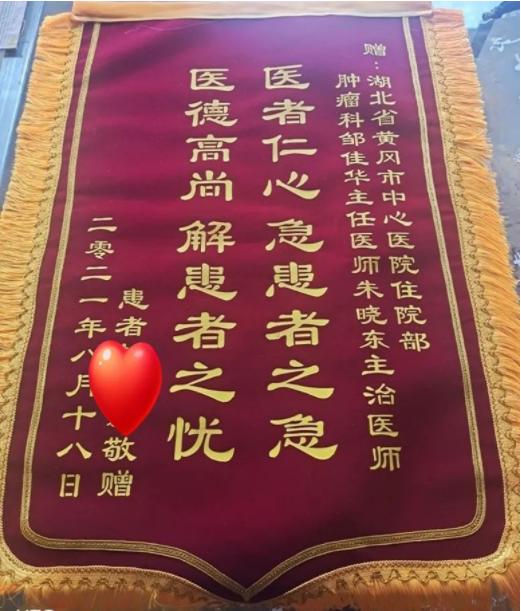 赠：湖北省黄冈市中心医院住院部
肿瘤科邹佳华主任医师朱晓东主治医师
医者仁心 急患者之急
医德高尚 解患者之忧
患者 敬赠
二零二一年八月十八日